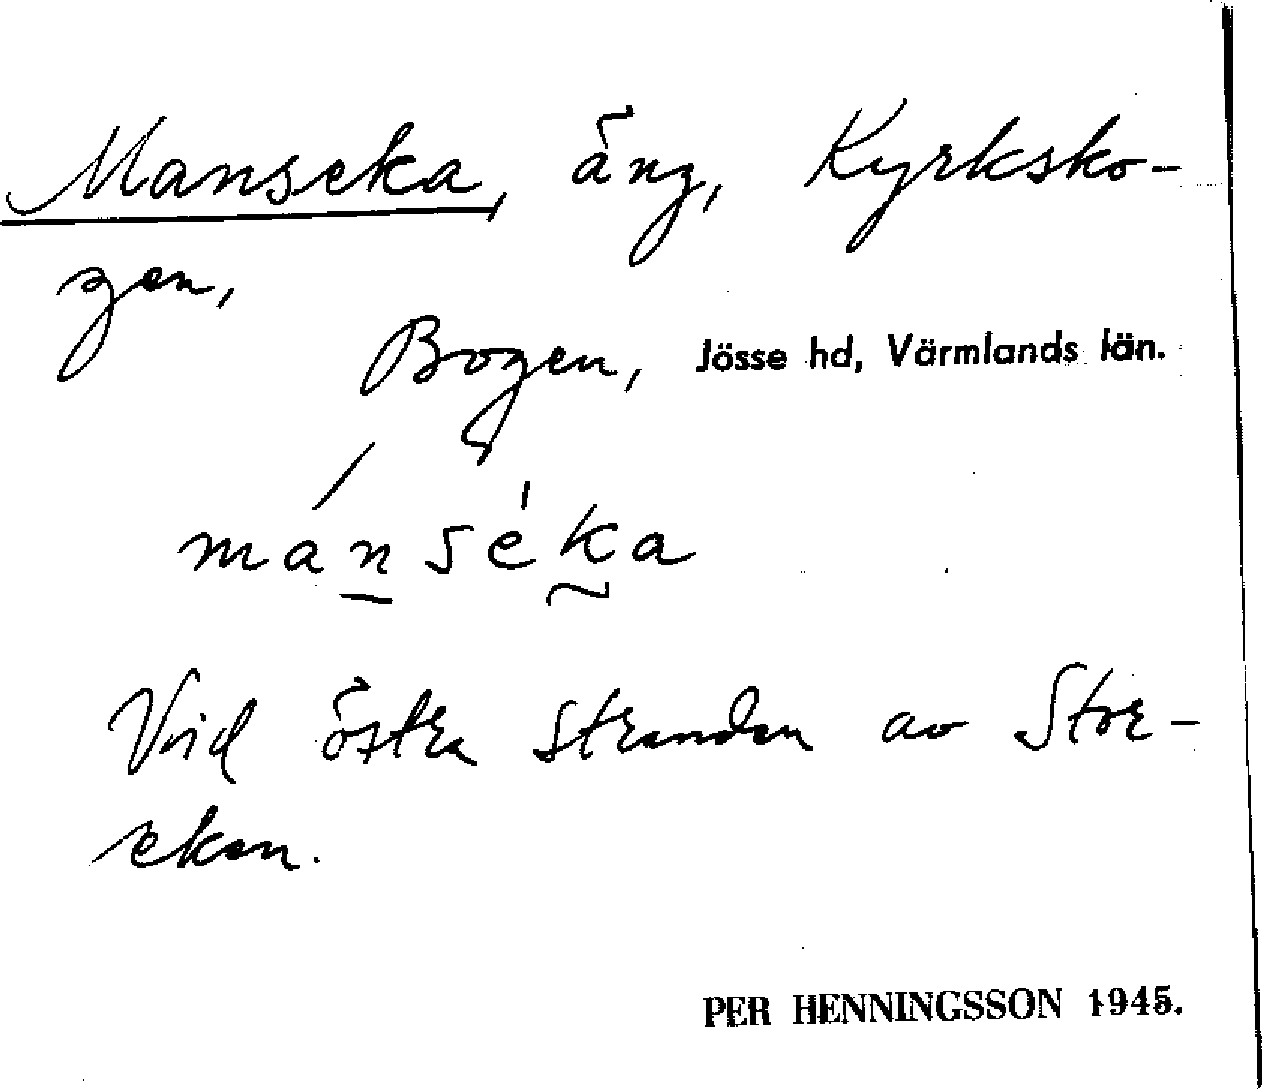 Manseka, äng, Kyrksko-
gen,
Bogen, Jösse hd, Värmlands län.
mánséka
Vid östra stranden av Stor-
eken.
PER HENNINGSSON 1945.